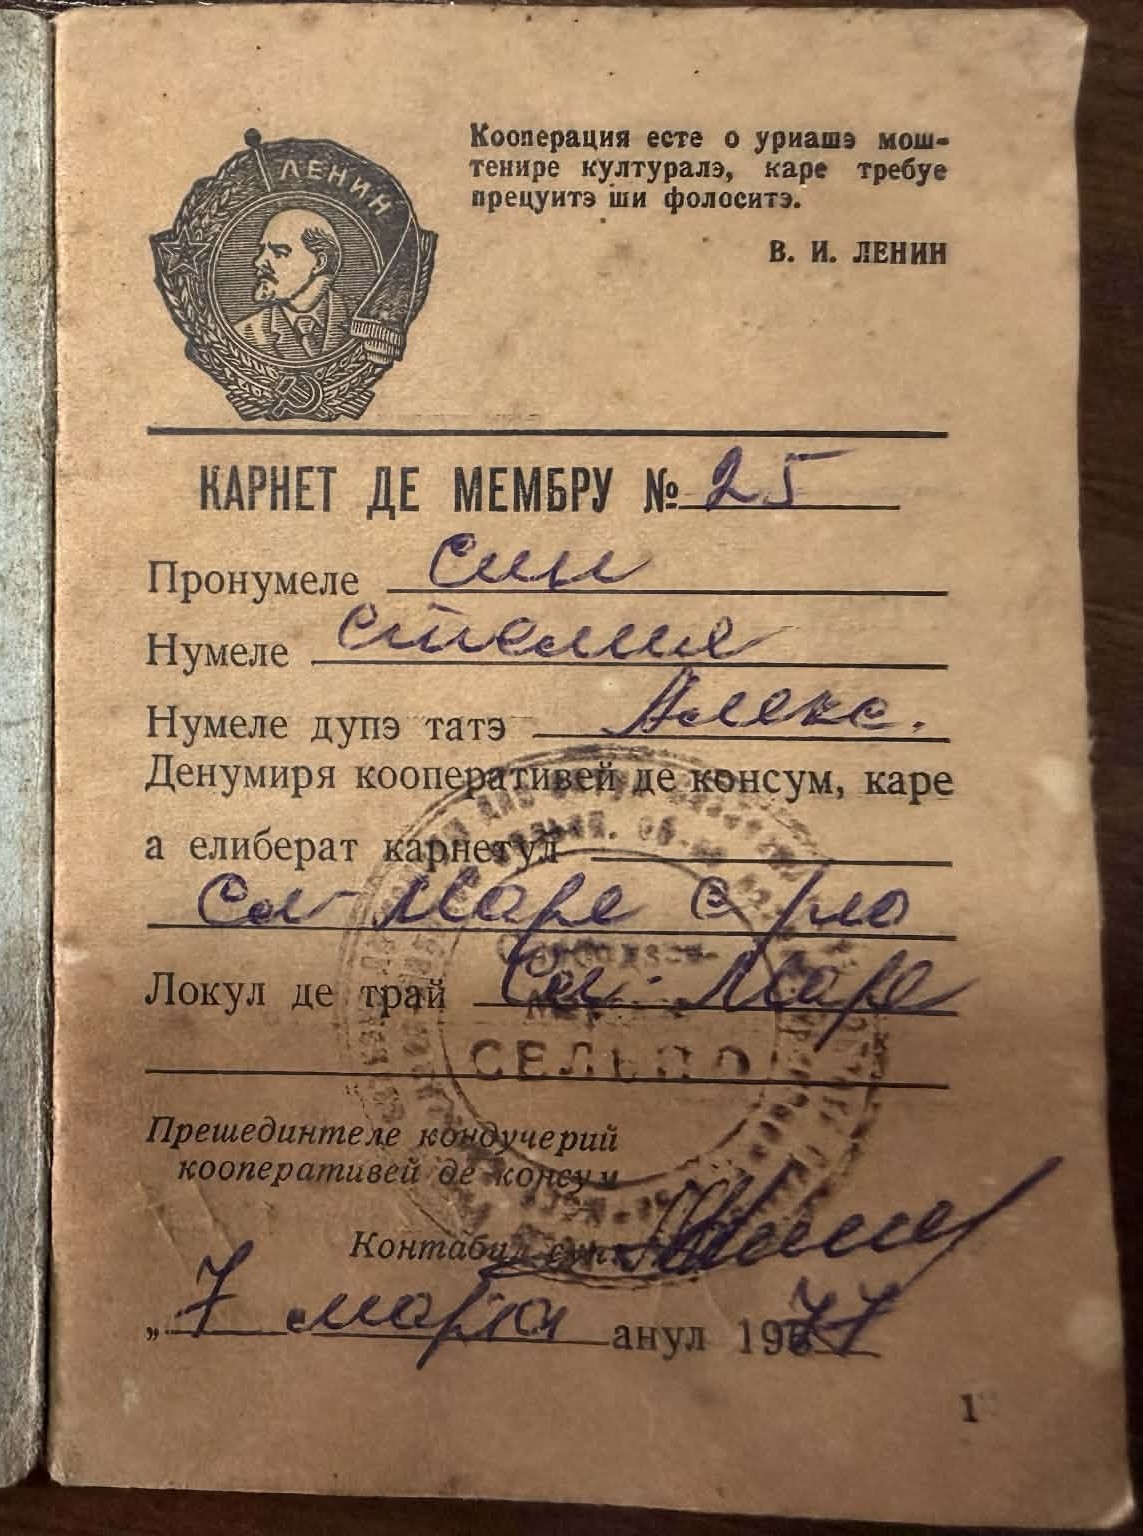 ЛЕНИН
Кооперация есте о уриашэ мош-
тенире културалэ, каре требуе
прецуитэ ши фолоситэ.
В. И. ЛЕНИН
КАРНЕТ ДЕ МЕМБРУ № 25
Пронумеле Сили
Нумеле
Нумеле дупэ татэ Алекс.
Денумиря кооперативей де консум, каре
а елиберат карнетул
Сл- Маре с рло
Локул де трай Сл- Маре
СЕЛЬПО
Прешединтеле кондучерий
кооперативей де консум
Контабил
„ 7 марта анул 1977
1